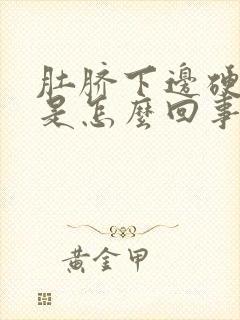 肚脐下邊硬
是怎麼回事
黃金甲